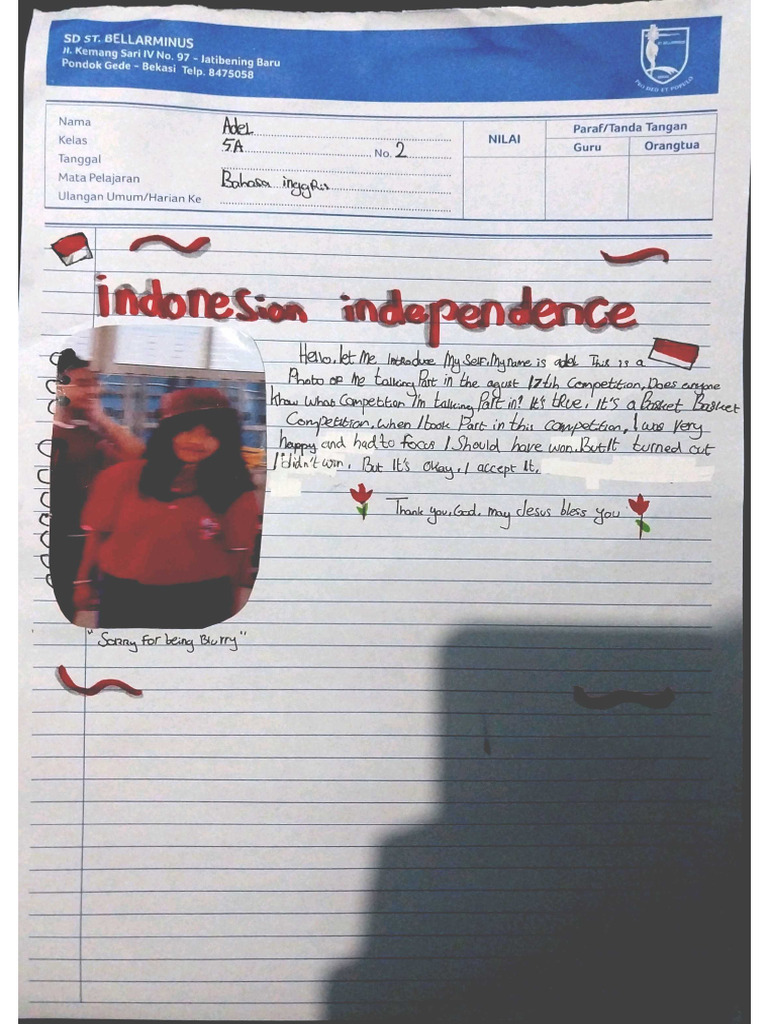 SD ST. BELLARMINUS
Jl. Kemang Sari IV No. 97 - Jatibening Baru
Pondok Gede - Bekasi Telp. 8475058
PRO DEO ET POPULO
Nama Adel
Kelas 5A No. 2
Tanggal
Mata Pelajaran Bahasa inggris
Ulangan Umum/Harian Ke
NILAI
Paraf/Tanda Tangan
Guru Orangtua
indonesian independence
Hello, let Me introduce My Self. My name is adel This is a
Photo of Me talking Part in the agust 17th Competition, Does anyone
know what Competition I'm talking Part in? It's true, It's a Basket Basket
Competition, when I took Part in this competition, I was very
happy and had to focus I Should have won. But It turned out
I didn't win. But It's okay, I accept It.
Thank you, God. may Jesus bless you
"Sorry For being Blurry"